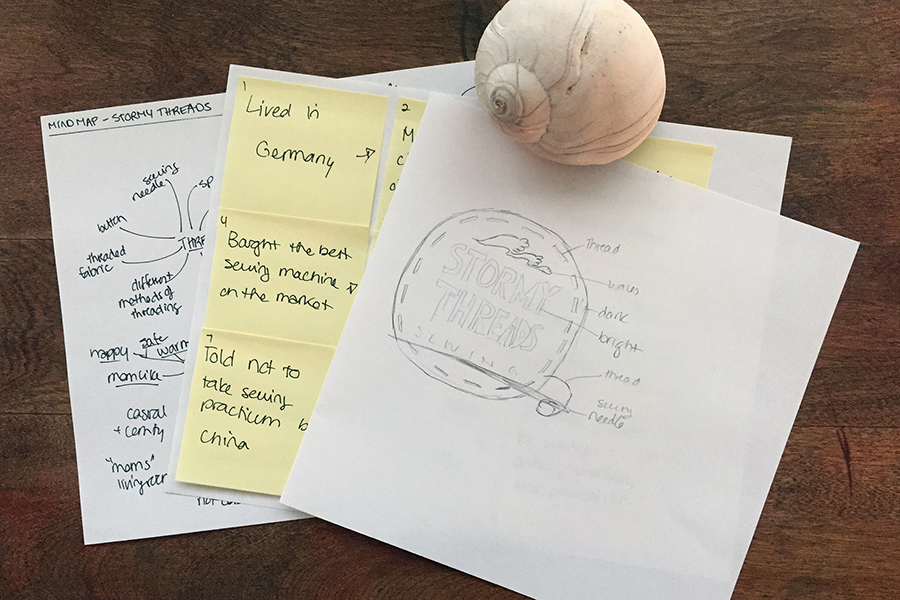 MIND MAP - STORMY THREADS
sewing
needle
button
THRE
threaded
fabric
different
methods of
threading
happy
safe
warm
mamlika
casual
+ comfy
"moms"
living
1
Lived in
Germany
2
4
Baught the best
sewing machine
on the market
7
Told not to
take sewing
practicum b
china
STORMY
THREADS
SEWING
thread
dark
bright
thread
sewing
needle